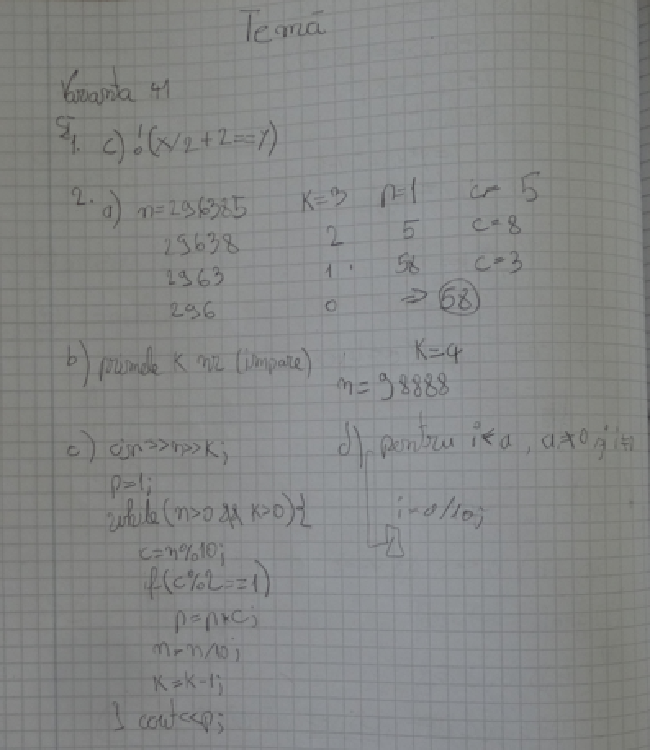 Temă
Varianta 41
I 1. c) !(x/2+2==y)
2. a) n=296385 K=3 p=1 c= 5
29638 2 5 c=8
2963 1 58 c=3
296 0 => 58
b) primele K nr (impare) K=4
n= 98888
c) cin>>n>>k;
p=1;
while(n>0 && k>0){
c=n%10;
if(c%2==1)
p=p*c;
n=n/10;
k=k-1;
} cout<<p;
d) pentru i<a,